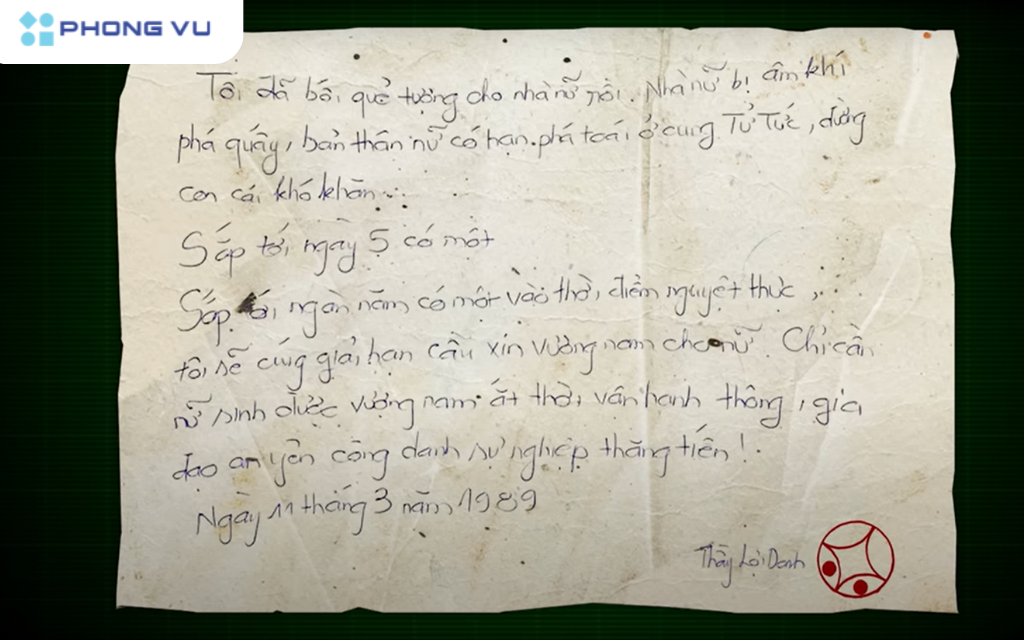 PHONG VU
Tôi đã bói quẻ tượng cho nhà nữ rồi. Nhà nữ bị âm khí
phá quấy, bản thân nữ có hạn phá toái ở cung Tử Tức, đường
con cái khó khăn...
Sắp tới ngày 5 có một
Sắp tới ngàn năm có một vào thời điểm nguyệt thực,
tôi sẽ cúng giải hạn cầu xin vượng nam cho nữ. Chỉ cần
nữ sinh được vượng nam ắt thời vận hanh thông, gia
đạo an yên công danh sự nghiệp thăng tiến!
Ngày 11 tháng 3 năm 1989
Thầy Lợi Danh